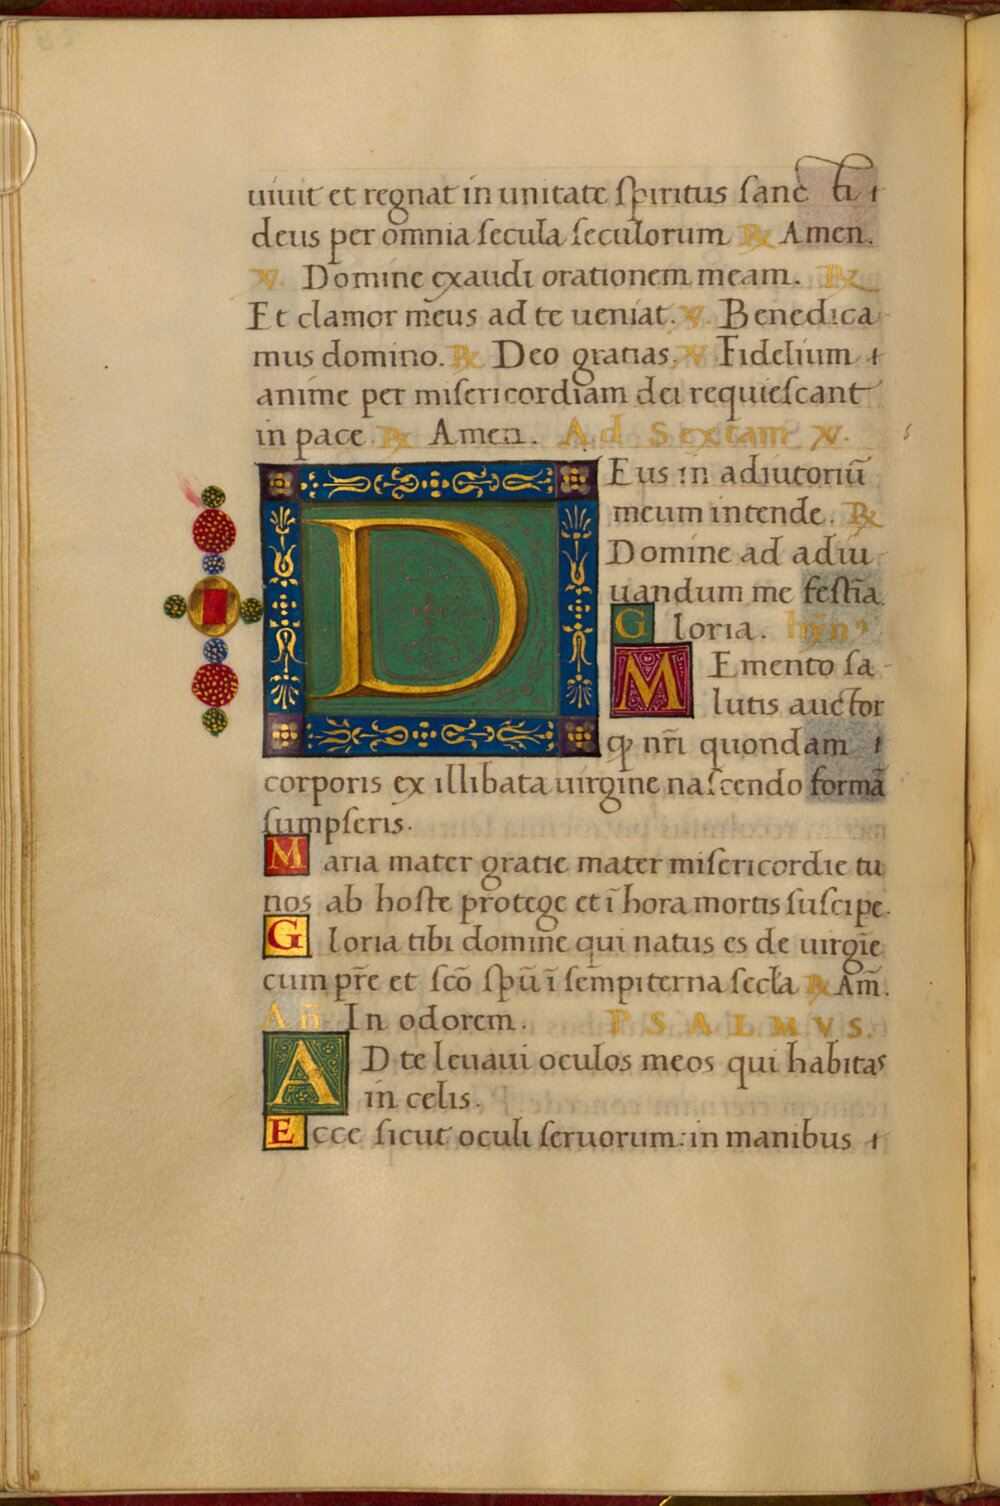 uiuit et regnat in unitate spiritus sancti
deus per omnia secula seculorum ℞ Amen.
℣. Domine exaudi orationem meam. ℞
Et clamor meus ad te ueniat. ℣. Benedica
mus domino. ℞ Deo gratias. ℣ Fidelium
anime per misericordiam dei requiescant
in pace ℞ Amen. Ad Sextam ℣.
DEus in adiutoriū
meum intende. ℞
Domine ad adiu
uandum me festīa.
Gloria. hȳnꝰ
MEmento sa
lutis auctor
ꝙ nr̄i quondam
corporis ex illibata uirgine nascendo formā
sumpseris.
Maria mater gratie mater misericordie tu
nos ab hoste protege et ī hora mortis suscipe.
Gloria tibi domine qui natus es de uirgīe
cum pr̄e et scō spū ī sempiterna secl̄a ℞ Am̄.
An̄ In odorem. PSALMVS.
AD te leuaui oculos meos qui habitas
in celis.
Ecce sicut oculi seruorum: in manibus